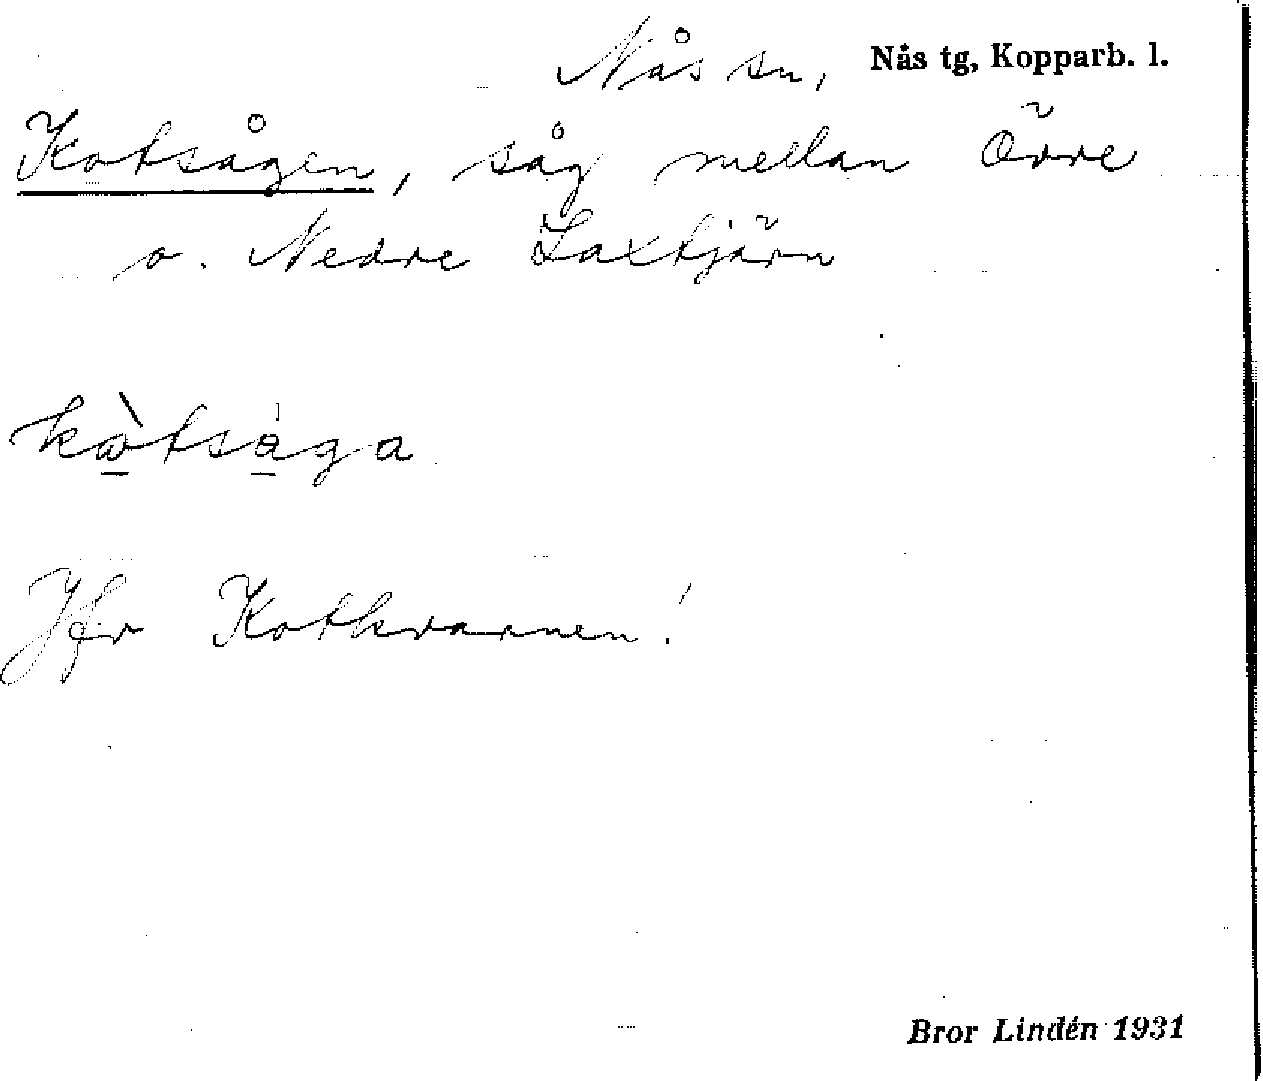 Nås sn, Nås tg, Kopparb. l.
Kotsågen, såg mellan Övre
o. Nedre Laxtjärn
kòtsága
Jfr Kotkvarnen!
Bror Lindén 1931